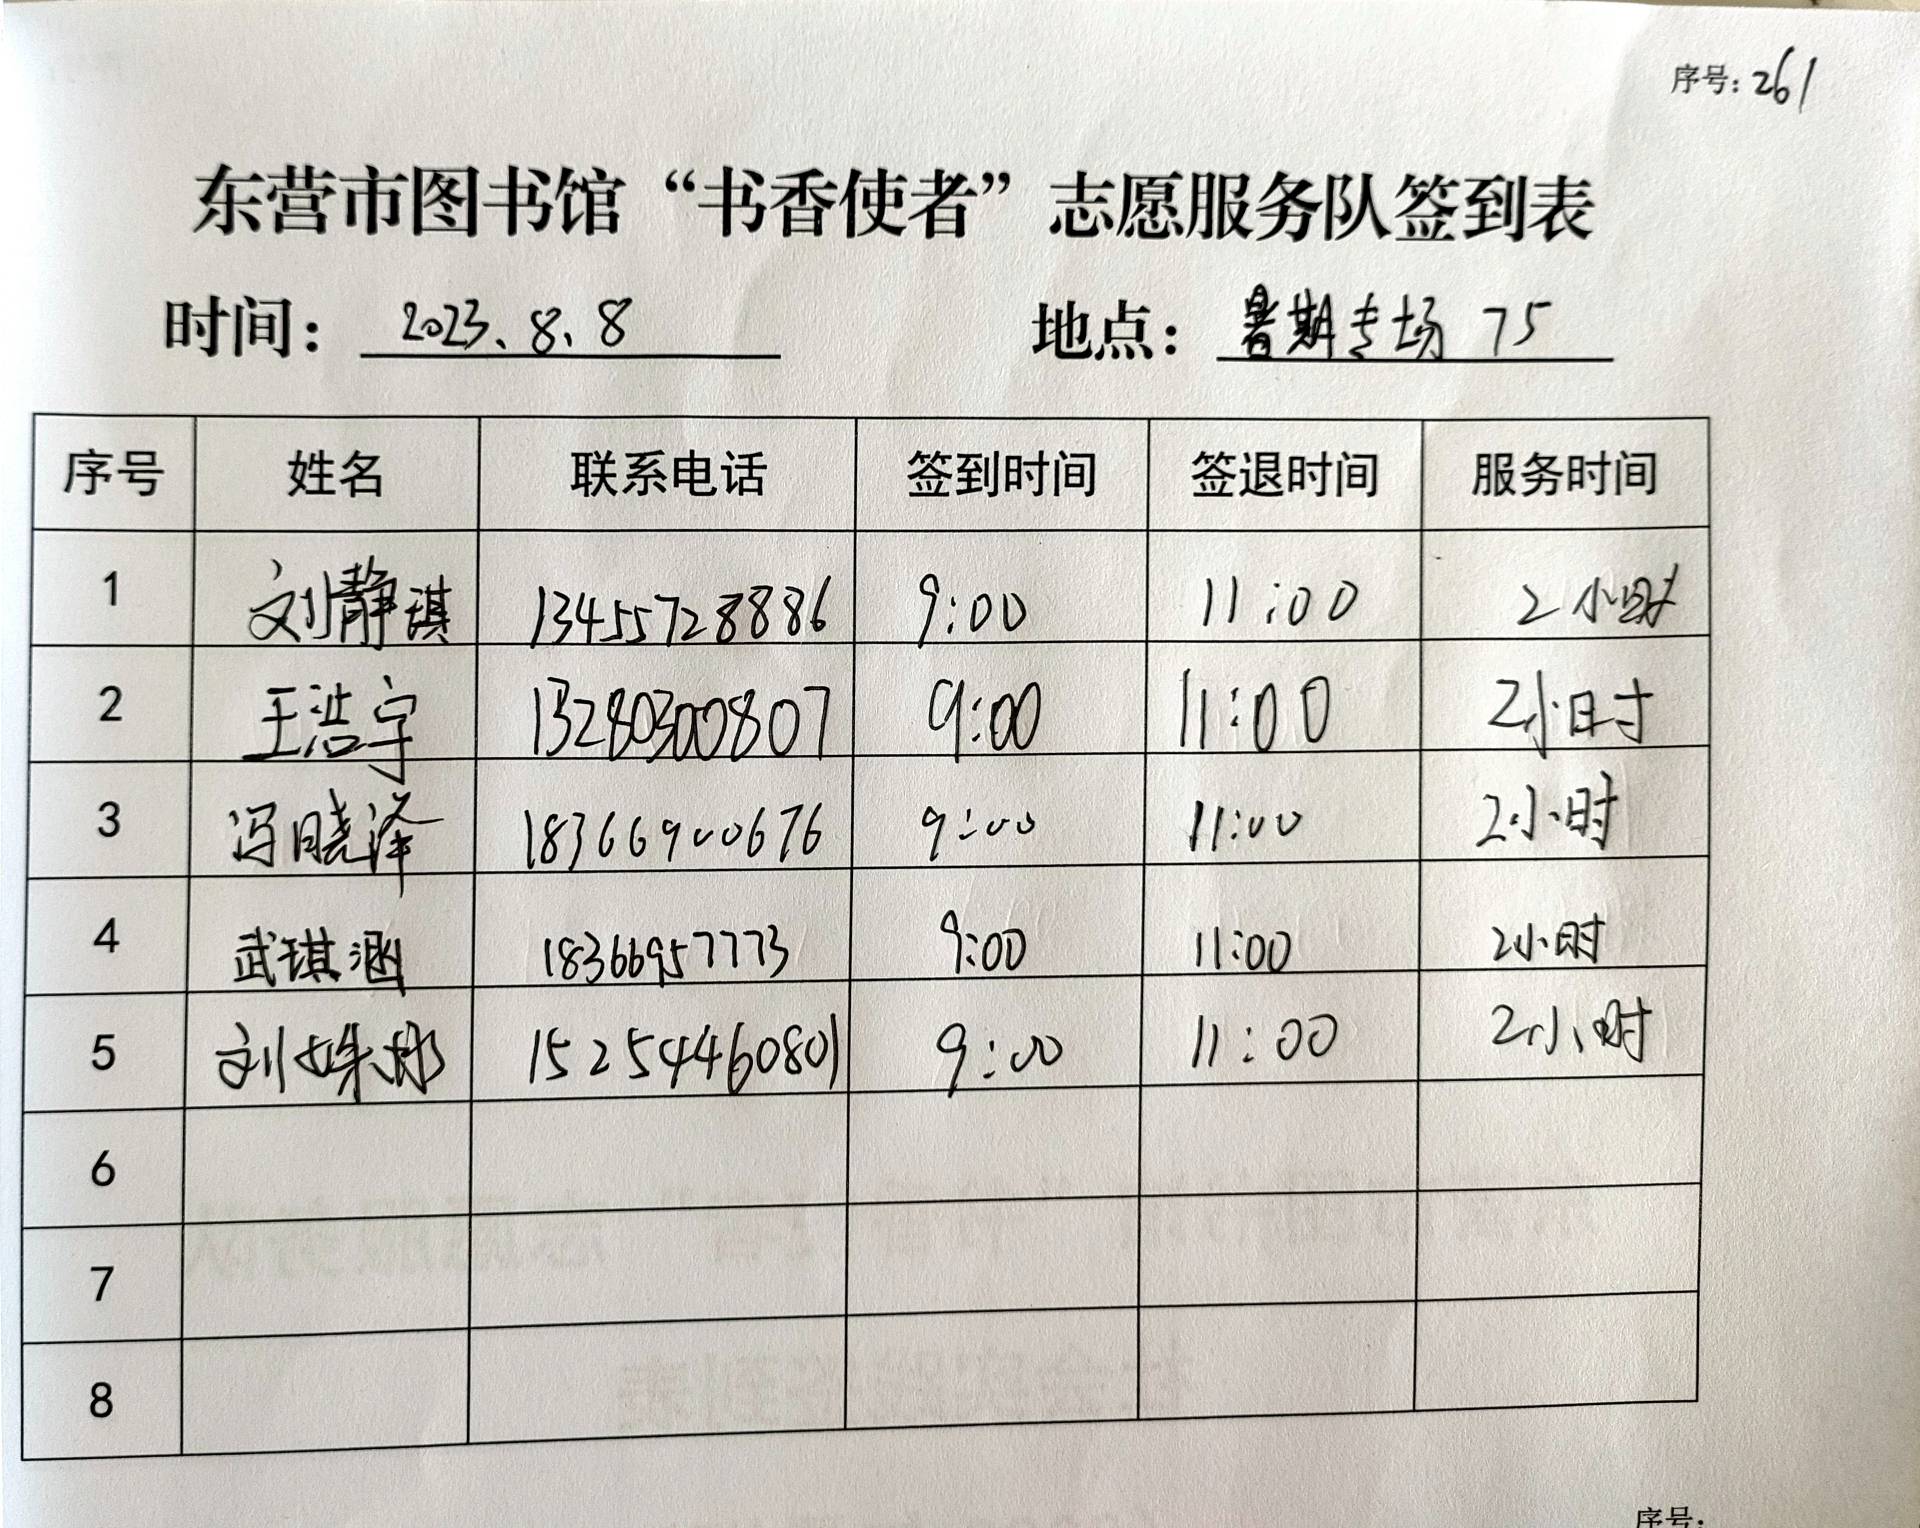 序号：261
东营市图书馆“书香使者”志愿服务队签到表
时间：2023.8.8 地点：暑期专场 75
序号 姓名 联系电话 签到时间 签退时间 服务时间
1 刘静琪 13455728886 9:00 11:00 2小时
2 王浩宇 13280300807 9:00 11:00 2小时
3 冯晓泽 18366900676 9:00 11:00 2小时
4 武琪涵 18366957773 9:00 11:00 2小时
5 刘姝彤 15254460801 9:00 11:00 2小时
6
7
8
序号：